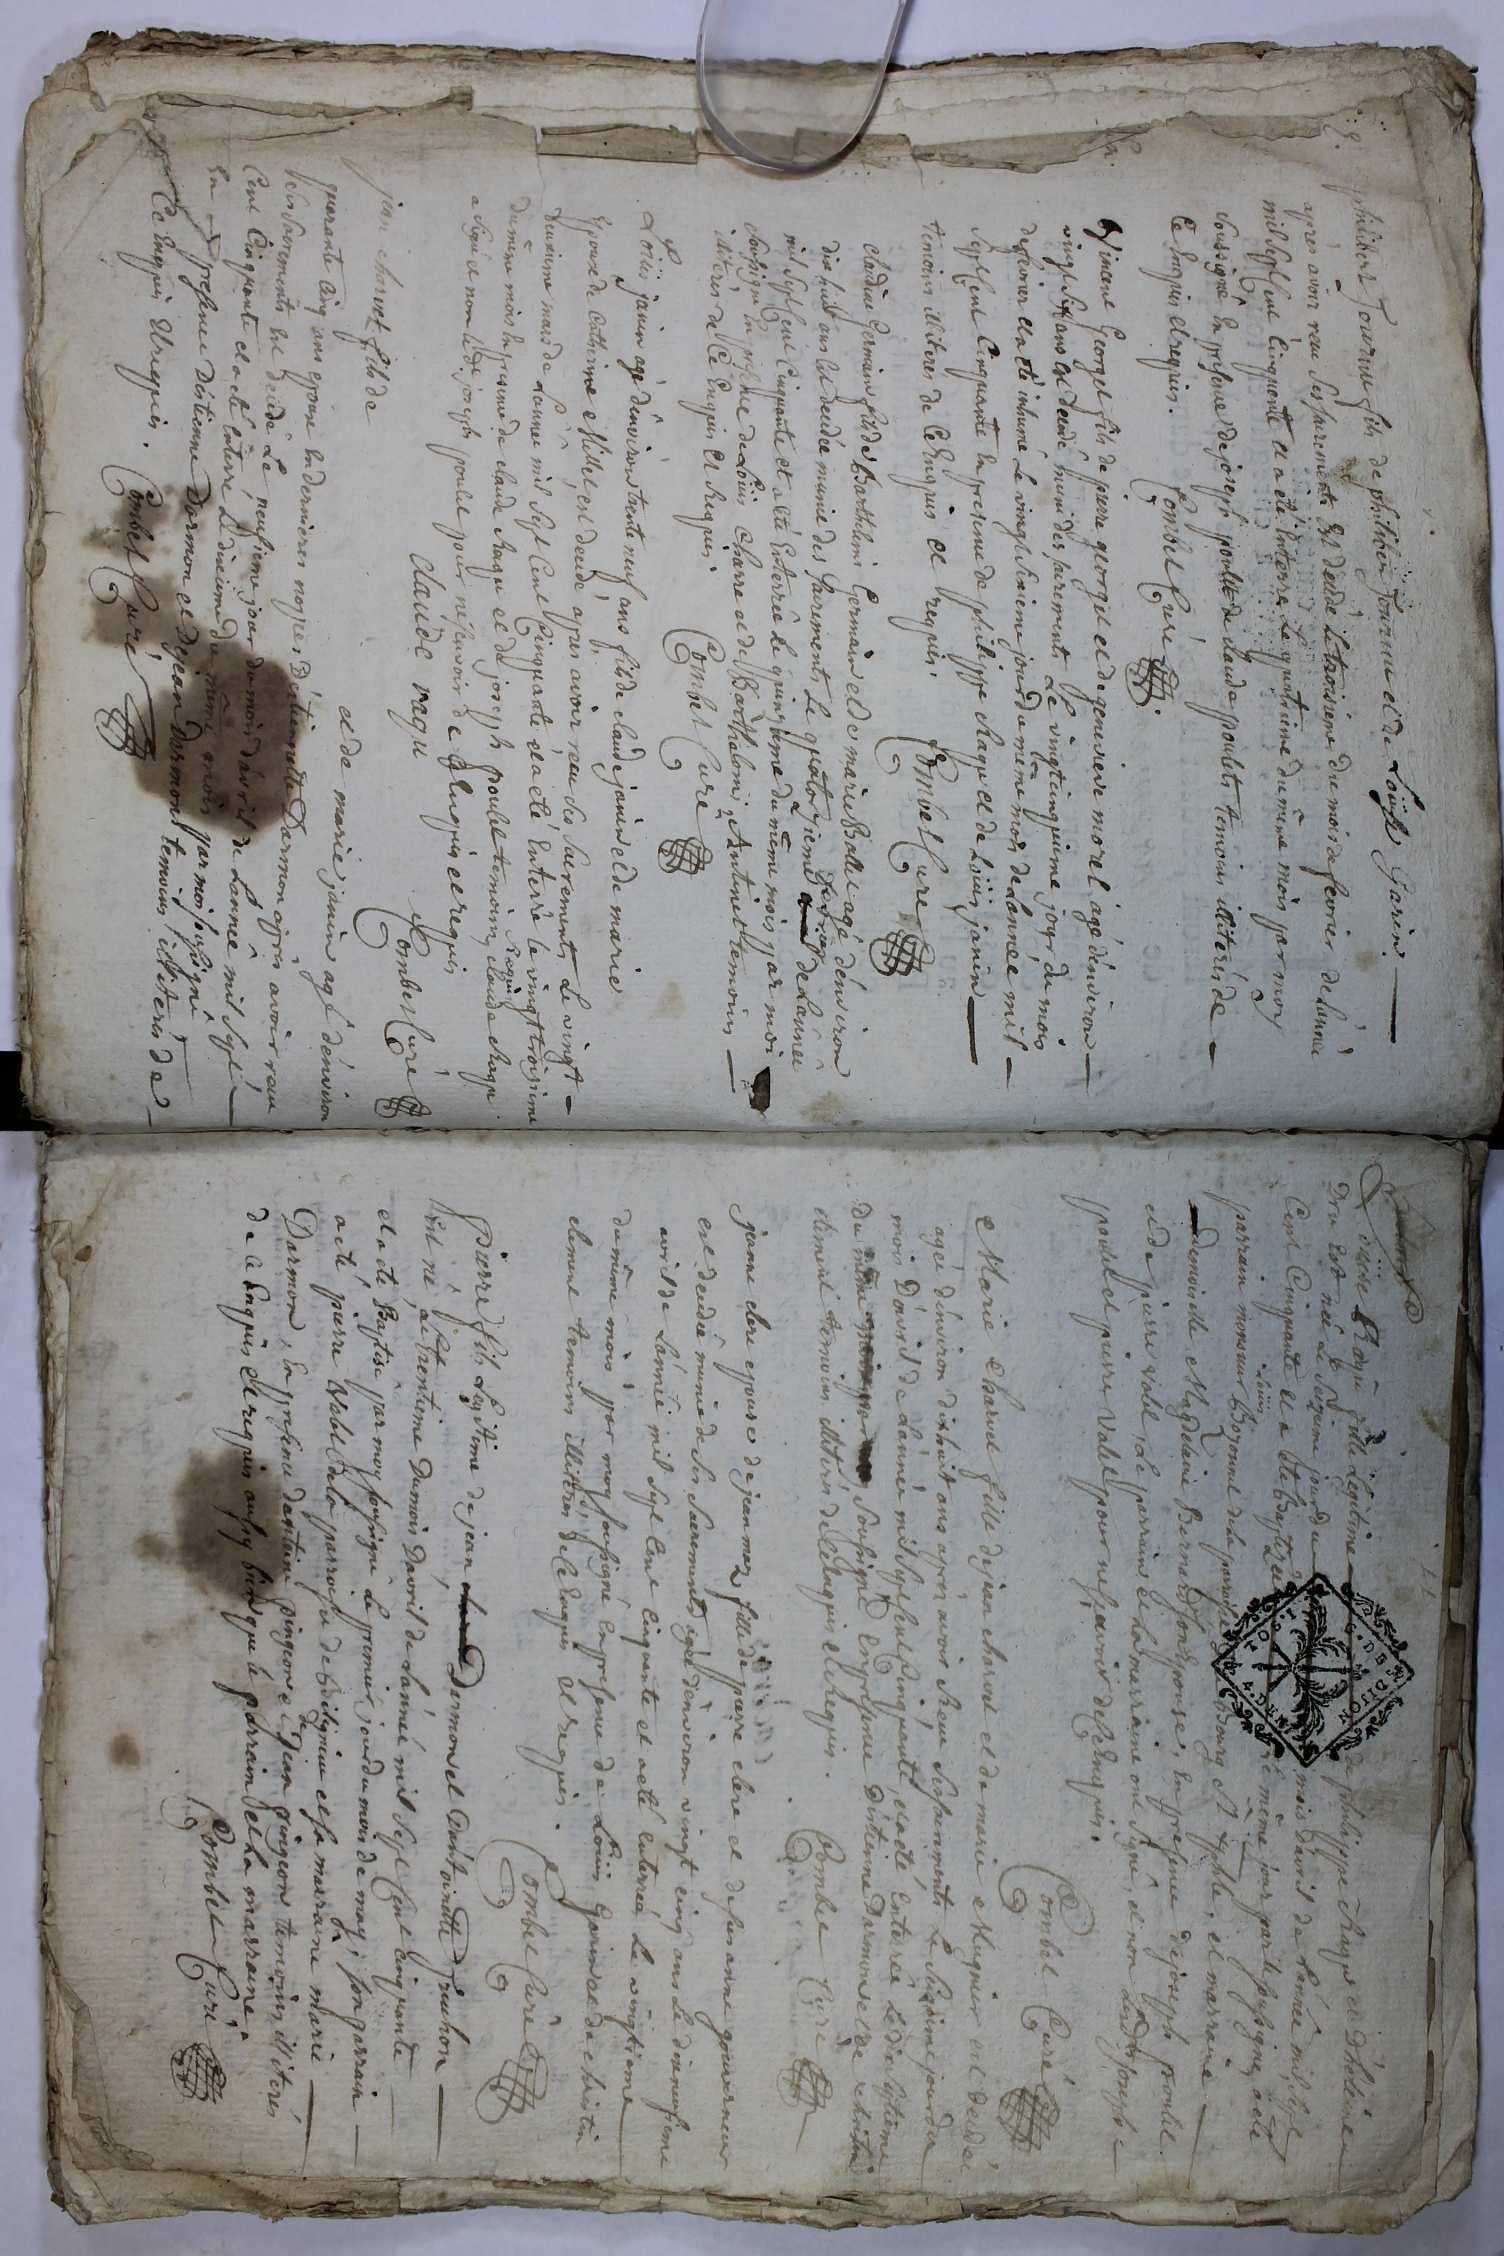 philibert Tournu fils de philibert Tournu et de Loüise Garin
apres avoir reçu ses sacrements Est decedé le troisieme du mois de fevrier de lannée
mil sept cent cinquante et a eté Enterré Le quatrieme du même mois par moy
soussigné En presence de joseph poulet de claude poulet temoins illiterés de
ce Enquis et requis. Combet Curé
vincent Georget fils de pierre georget et de genevieve morel agé dénviron
vingt six ans est decedé muni des sacrements Le vingtcinquieme jour du mois
de fevrier et a eté inhumé Le vingt sixieme jour du meme mois de Lannée mil
sept Cent Cinquante En presence de philippe Raque et de Loüis janin
temoins illiteres de ce Enquis et requis. Combet Curé
claudine Germain fille de Barthelemi Germain et de marie Bollet agé dénviron
dix huit ans est decedée munie des sacrements Le quatorzieme fevrier de Lannée
mil sept cent Cinquante et a eté Enterrée Le quinzieme du même mois par moi
soussigné En presence de Loüis Charre et de Barthelemi Antinet temoins
illiterés de ce Enquis et Requis Combet Curé
Loüis janin agé dénviron trente neuf ans fils de claude janin et de marie
Epoux de Catherine Millet est decedé apres avoir reçu ses sacrements Le vingt
deuxieme mars de Lannée mil sept Cent Cinquante et a eté Enterré le vingt troisieme
du même mois En presence de claude Raque et de joseph poulet temoins, claude Raque
a signé et non ledit joseph poulet pour ne sçavoir de ce Enquis et requis
claude raqu Combet Curé
jean charvet fils de et de marie janin agé dénviron
quarante cinq ans epoux En dernieres nopces Détiennette Darmon apres avoir reçu
ses sacrements Est decedé Le neufieme jour du mois davril de Lannée mil sept
Cent Cinquante et a eté Enterré Le dixieme du même mois par moi soussigné
En presence Détienne Darmon et De jean Darmon temoins illiterés de
ce Enquis et requis. Combet Curé
Loüise Raque fille Legitime de philippe Raque et d'helene
Dru Est née Le seizieme jour du mois davril de Lannée mil sept
Cent Cinquante et a eté Baptizée Le même jour par le soussigné, a eté
parrain monsieur Loüis Bozonnet de la parroisse de Bourg et marraine
demoiselle Magdelaine Bernard son Epouse, En presence de joseph poulet
et de pierre Vabel, le parrain et La marraine ont signé, et non Lesdits joseph
poulet et pierre Vabel pour ne sçavoir de ce Enquis.
Combet Curé
Marie charvet fille de jean charvet et de marie Muguier est decedée
agée dénviron dixhuit ans apprès avoir Reçu ses sacrements Le seizieme jour du
mois Davril de Lannée mil sept cent Cinquante, et a eté Enterrée Le dixseptieme
du même mois par moy soussigné En presence Détienne Darmon et de christin
clement temoins illiterés de ce Enquis et Requis. Combet Curé
jeanne clere epouse de jean mez fille de pierre clere et de susanne gouverneur
est decedée munie de ses sacrements agée dénviron vingt cinq ans Le dixneufieme
avril de Lannée mil sept Cent Cinquante et a eté Enterrée Le vingtieme
du même mois par moy soussigné En presence de Loüis Garin et de christin
clement temoins illiterés de ce Enquis et requis. Combet Curé
Pierre fils Legitime de jean Darmon et Dantoinette Truchon
Est né le trentieme Du mois Davril de Lannée mil sept Cent Cinquante
et a eté Baptisé par moy soussigné Le premier jour du mois de may, son parrain
a eté pierre Vabel de la parroisse de et sa marraine marie
Darmon, En presence dantoine pingeon et de jean pingeon temoins illiterés
de ce Enquis et requis aussy bien que le parrain et La marraine
Combet Curé
G. DE DIJON